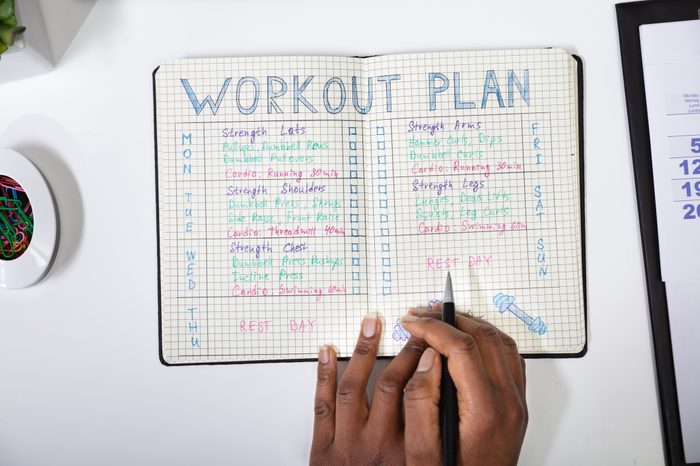 WORKOUT PLAN
MON
Strength Lats
Pullups, Dumbbell Rows
Dumbbell Pullovers
Cardio: Running 30min
TUE
Strength Shoulders
Dumbbell Press, Shrugs
Side Raise, Front Raise
Cardio: Threadmill 40min
WED
Strength Chest
Dumbbell Press Pushups
Incline Press
Cardio: Swimming 60min
THU
REST DAY
Strength Arms
Hammer Curls, Dips
Dumbbell Curls
Cardio: Running 30min
FRI
Strength Legs
Lunges, Dead Lifts
Squats, Leg Curls
Cardio: Swimming 60m
SAT
REST DAY
SUN
Monday
5
12
19